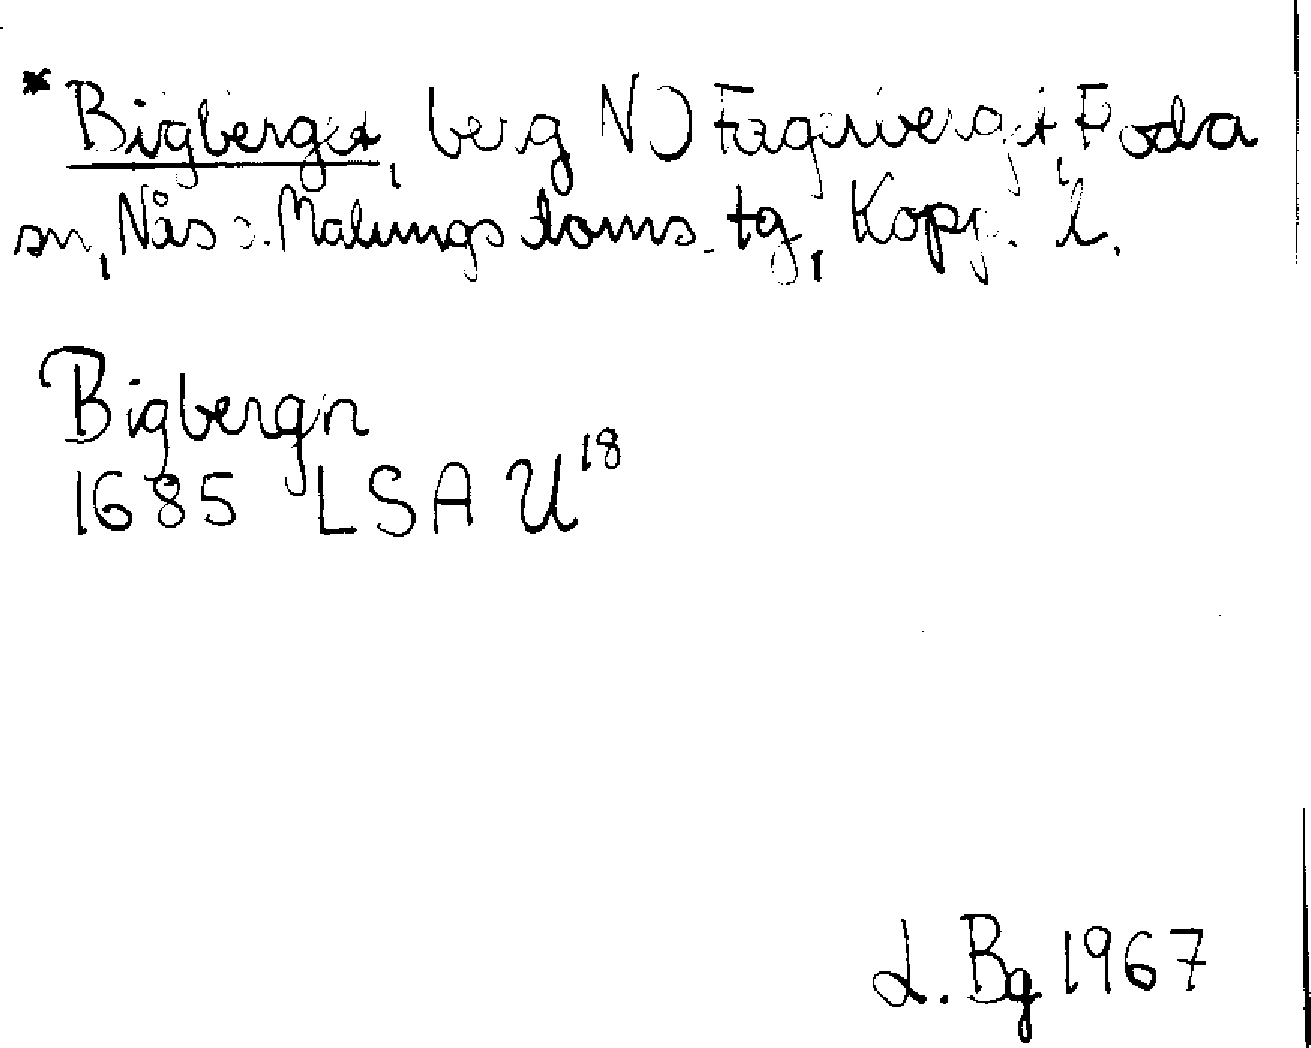 * Bigberget, berg NO Fagerberget, Floda
sn, Nås o. Malungs doms. tg, Kopp. l.
Bigbergn
1685 LSA U¹⁸
L. Bg 1967